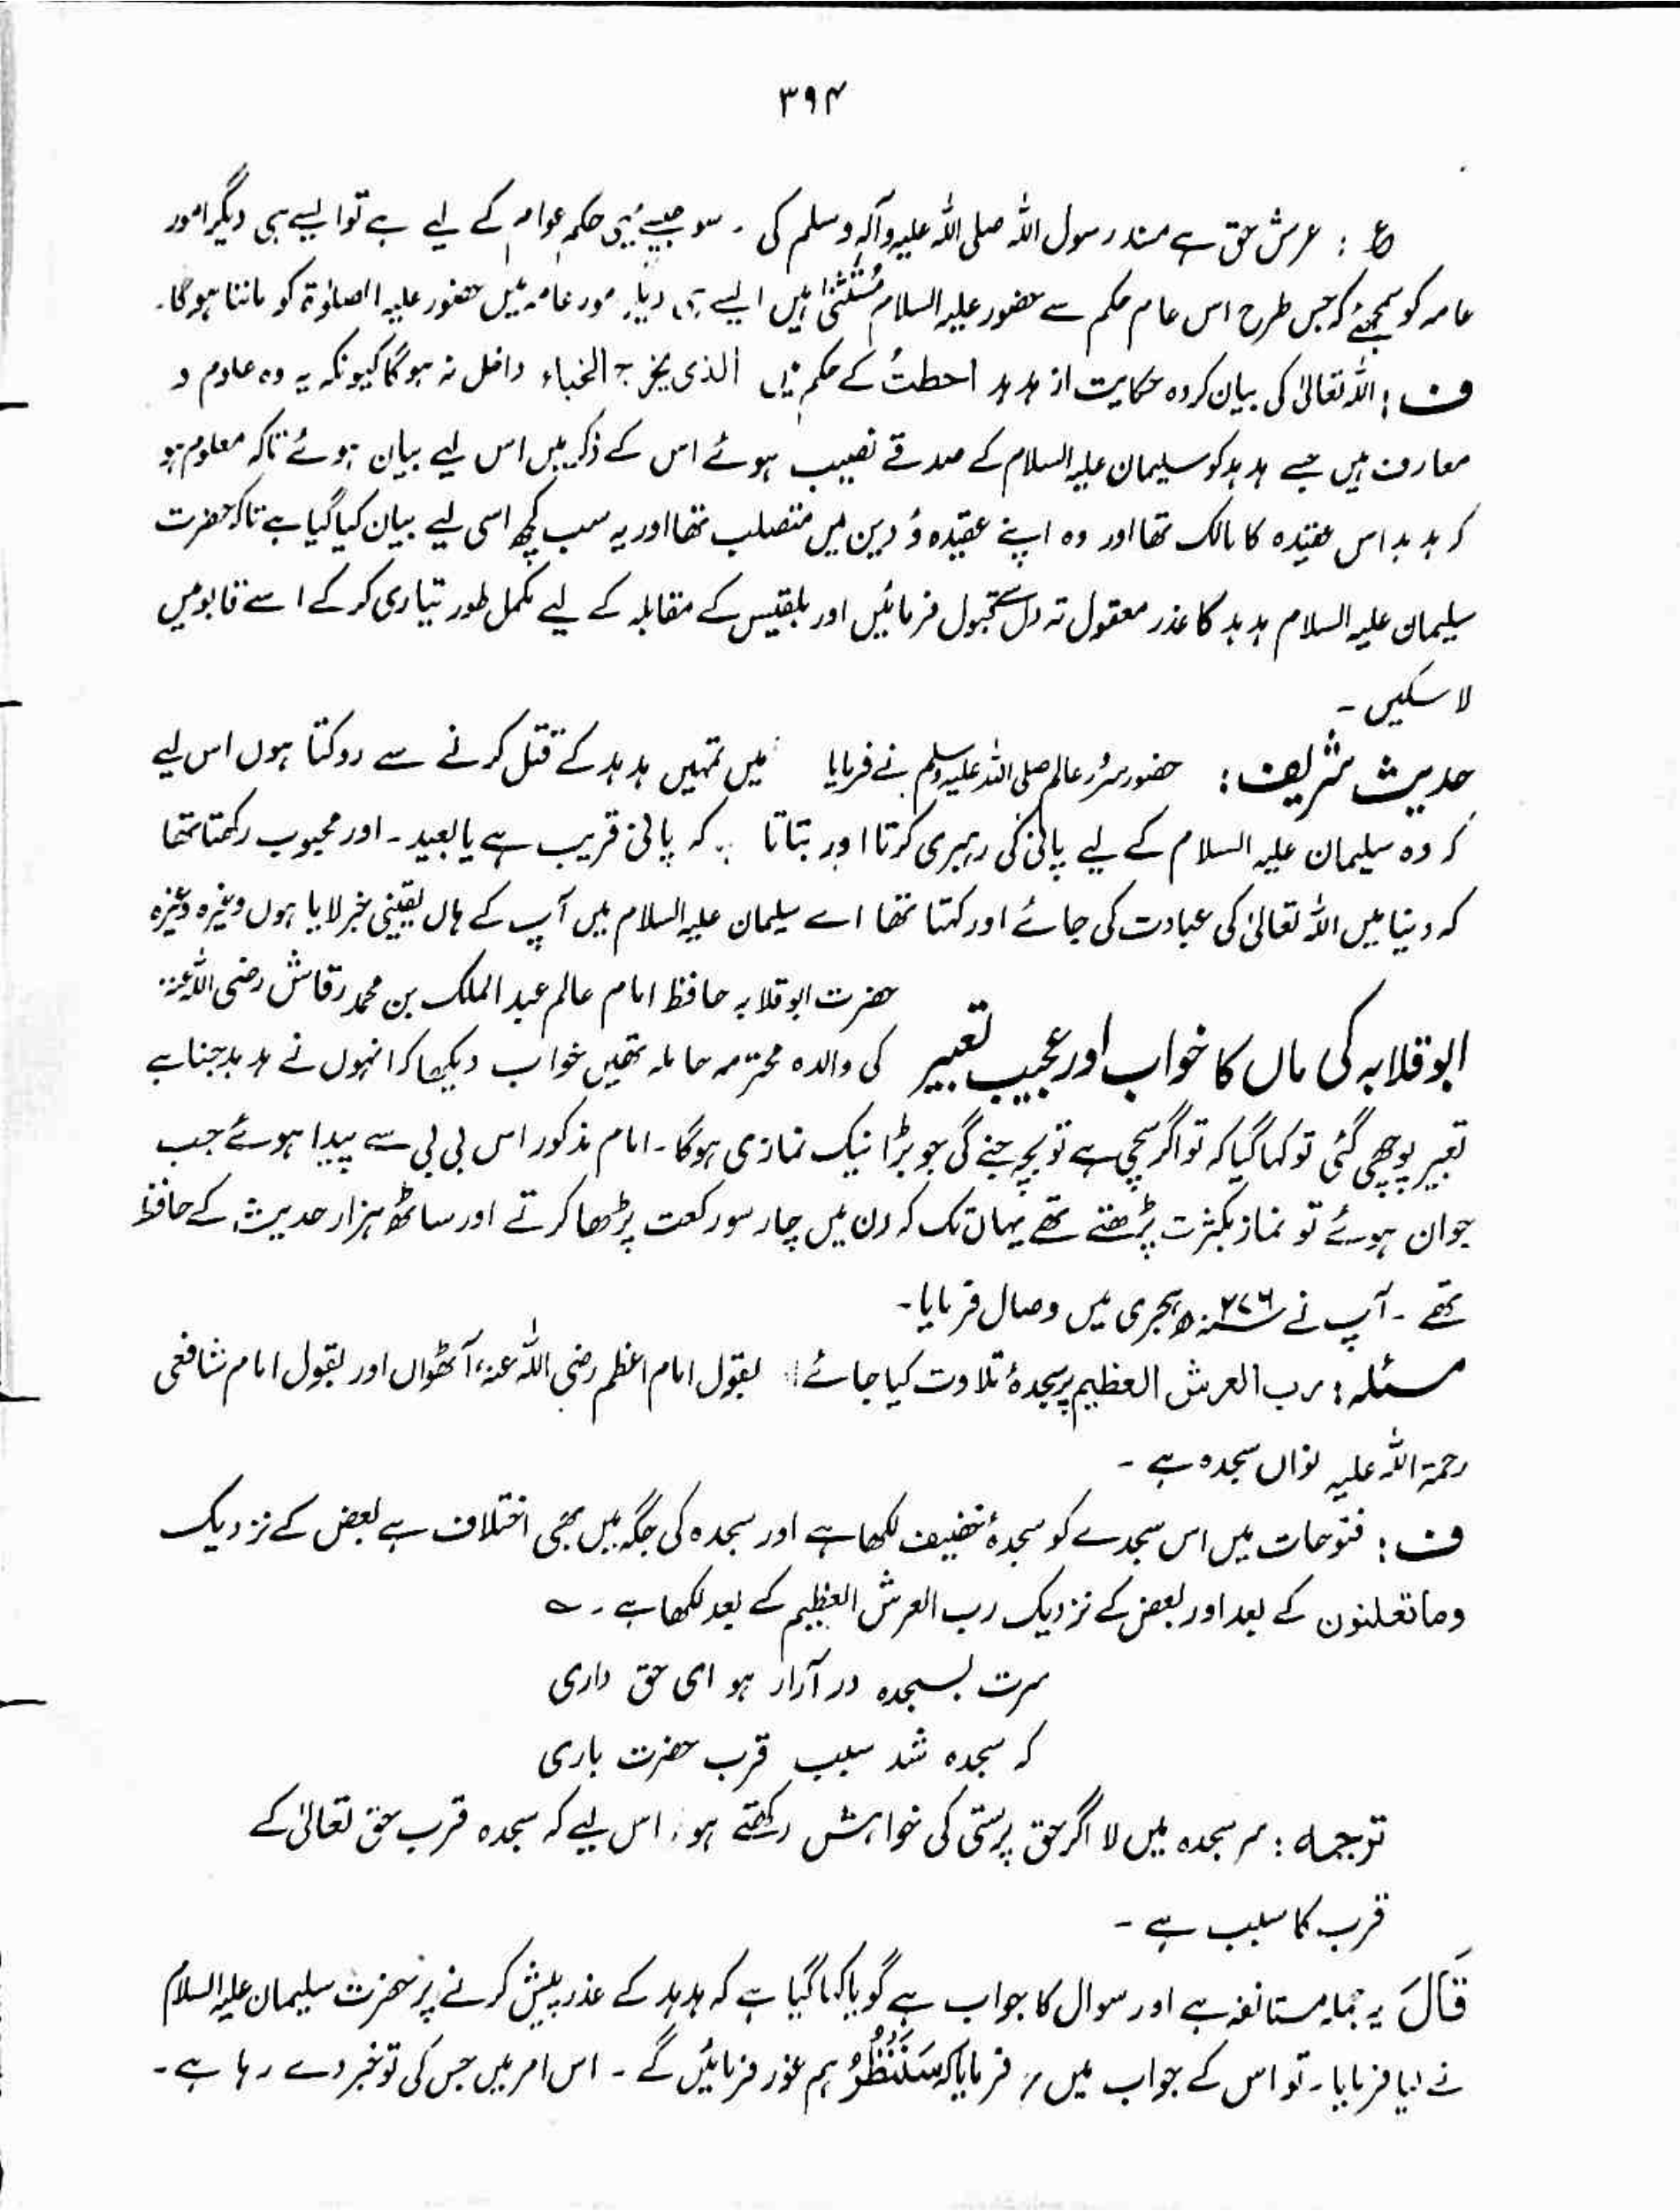 ۳۹۴
ع : عرش حق ہے مسند رسول اللہ صلی اللہ علیہ وآلہ وسلم کی ۔ سو جیسے یہی حکم عوام کے لیے ہے تو ایسے ہی دیگر امور
عامہ کو سمجھئے کہ جس طرح اس عام حکم سے حضور علیہ السلام مُستثنیٰ ہیں ایسے ہی دیگر امور عامہ میں حضور علیہ الصلوٰۃ کو ماننا ہوگا۔
ف : اللہ تعالیٰ کی بیان کردہ حکایت از ہدہد احطتُ کے حکم میں الذی یخرج الخباء داخل نہ ہوگا کیونکہ یہ وہ علوم و
معارف ہیں جسے ہدہد کو سلیمان علیہ السلام کے صدقے نصیب ہوئے اس کے ذکر میں اس لیے بیان ہوئے تاکہ معلوم ہو
کہ ہدہد اس عقیدہ کا مالک تھا اور وہ اپنے عقیدہ و دین میں متصلب تھا اور یہ سب کچھ اسی لیے بیان کیا گیا ہے تاکہ حضرت
سلیمان علیہ السلام ہدہد کا عذر معقول تہ دل سے قبول فرمائیں اور بلقیس کے مقابلہ کے لیے مکمل طور تیاری کر کے اسے قابو میں
لا سکیں ۔
حدیث شریف : حضور سرور عالم صلی اللہ علیہ وسلم نے فرمایا میں تمہیں ہدہد کے قتل کرنے سے روکتا ہوں اس لیے
کہ وہ سلیمان علیہ السلام کے لیے پانی کی رہبری کرتا اور بتاتا کہ پانی قریب ہے یا بعید ۔ اور محبوب رکھتا تھا
کہ دنیا میں اللہ تعالیٰ کی عبادت کی جائے اور کہتا تھا اے سلیمان علیہ السلام میں آپ کے ہاں یقینی خبر لایا ہوں وغیرہ وغیرہ
حضرت ابوقلابہ حافظ امام عالم عبد الملک بن محمد رقاش رضی اللہ عنہ
ابوقلابہ کی ماں کا خواب اور عجیب تعبیر کی والدہ محترمہ حاملہ تھیں خواب دیکھا کہ انہوں نے ہدہد جنا ہے
تعبیر پوچھی گئی تو کہا گیا کہ تو اگر سچی ہے تو بچہ جنے گی جو بڑا نیک نمازی ہوگا ۔ امام مذکور اس بی بی سے پیدا ہوئے جب
جوان ہوئے تو نماز بکثرت پڑھتے تھے یہاں تک کہ دن میں چار سو رکعت پڑھا کرتے اور ساٹھ ہزار حدیث کے حافظ
تھے ۔ آپ نے ۲۷۶ھ ہجری میں وصال فرمایا ۔
مسئلہ : رب العرش العظیم پر سجدۂ تلاوت کیا جائے بقول امام اعظم رضی اللہ عنہ، آٹھواں اور بقول امام شافعی
رحمۃ اللہ علیہ نواں سجدہ ہے ۔
ف : فتوحات میں اس سجدے کو سجدۂ خفیف لکھا ہے اور سجدہ کی جگہ میں بھی اختلاف ہے بعض کے نزدیک
وما تعلنون کے بعد اور بعض کے نزدیک رب العرش العظیم کے بعد لکھا ہے ۔ ے
سرت بسجدہ در آرار ہو ای حق داری
کہ سجدہ شد سبب قرب حضرت باری
ترجمہ : سر سجدہ میں لا اگر حق پرستی کی خواہش رکھتے ہو، اس لیے کہ سجدہ قرب حق تعالیٰ کے
قرب کا سبب ہے ۔
قَالَ یہ جملہ مستانفہ ہے اور سوال کا جواب ہے گویا کہا گیا ہے کہ ہدہد کے عذر پیش کرنے پر حضرت سلیمان علیہ السلام
نے کیا فرمایا ۔ تو اس کے جواب میں فرمایا کہ سَنَنْظُرُ ہم غور فرمائیں گے ۔ اس امر میں جس کی تو خبر دے رہا ہے ۔